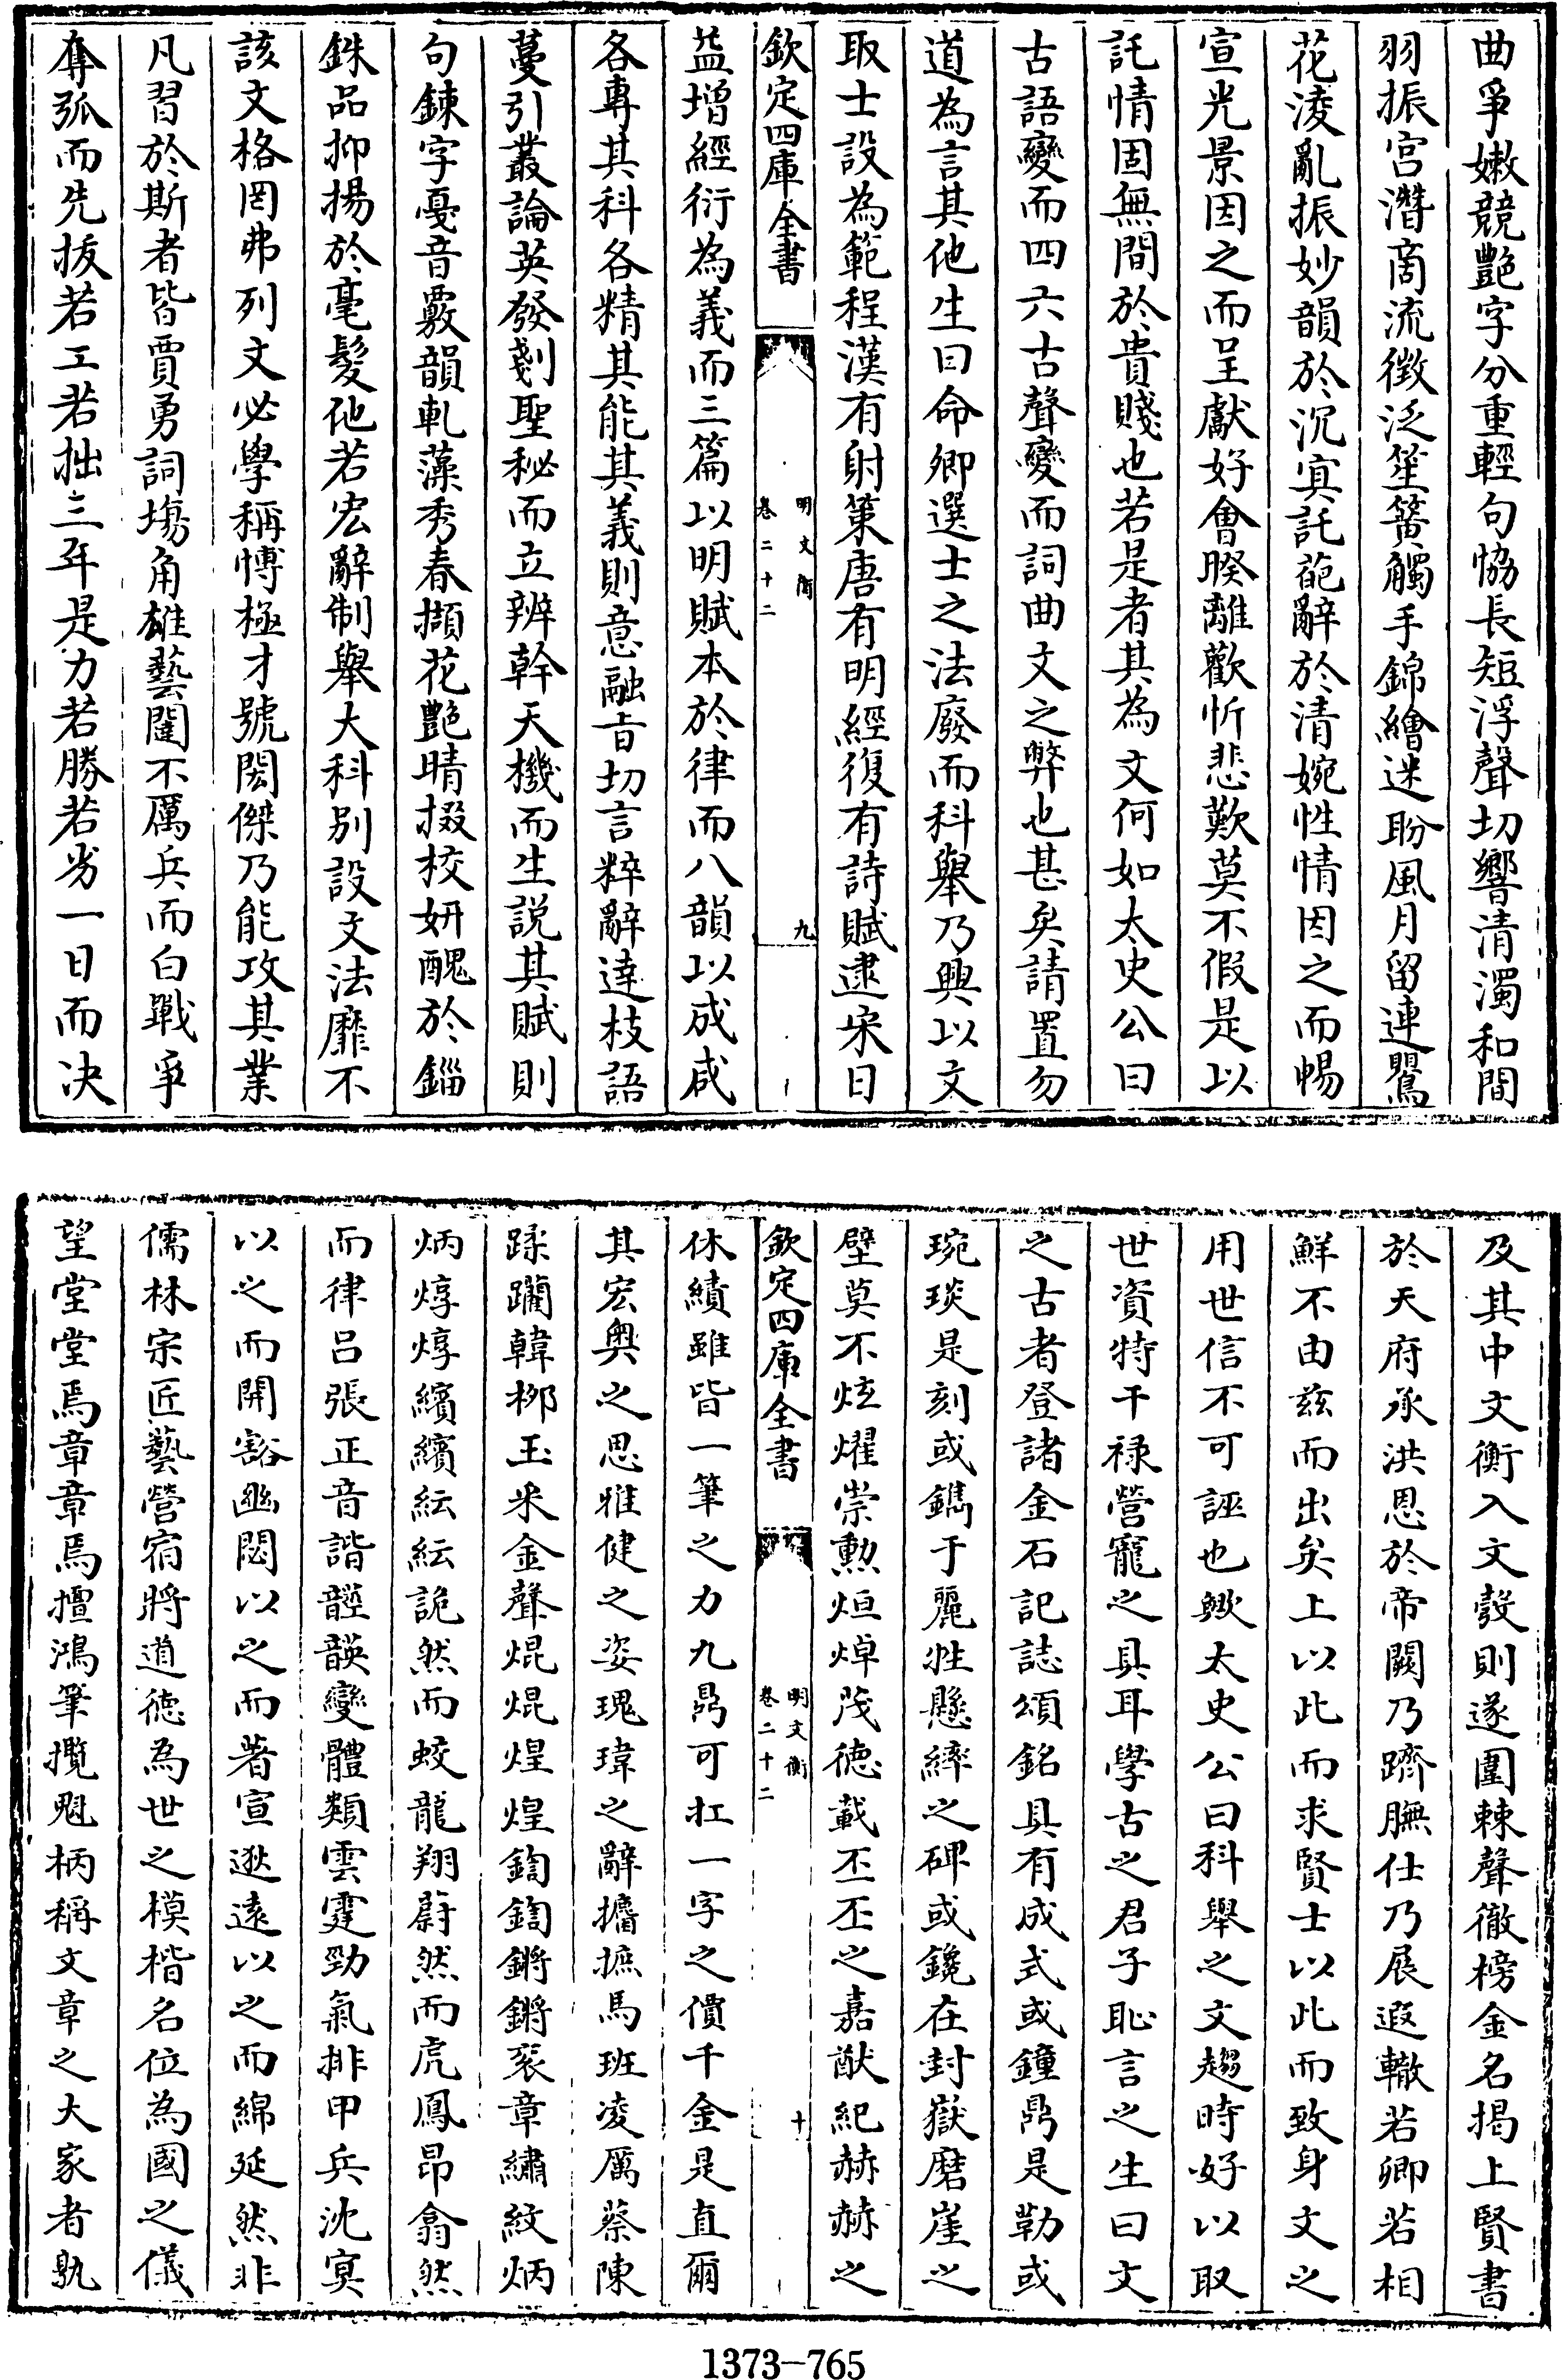 曲爭嫩競艷字分重輕句恊長短浮聲切響清濁和間
羽振宫濳商流徴泛笙簧觸手錦繪迷盼風月留連鸎
花淩亂振妙韻於沉寘託葩辭於清婉性情因之而暢
宣光景因之而呈獻好會暌離歡忻悲歎莫不假是以
託情固無間於貴賤也若是者其為文何如太史公曰
古語變而四六古聲變而詞曲文之弊也甚矣請置勿
道為言其他生曰命鄉選士之法廢而科舉乃興以文
取士設為範程漢有射策唐有明經復有詩賦逮宋日
欽定四庫全書
明文衡
卷二十二
九
益增經衍為義而三篇以明賦本於律而八韻以成咸
各專其科各精其能其義則意融㫖切言粹辭達枝語
蔓引叢論英發剗聖秘而立辨幹天機而生説其賦則
句鍊字戞音覈韻軋藻秀春擷花艷晴掇校妍醜於錙
銖品抑揚於毫髮他若宏辭制舉大科别設文法靡不
該文格罔弗列文必學稱愽極才號閎傑乃能攻其業
凡習於斯者皆賈勇詞塲角雄藝闈不厲兵而白戰爭
奪弧而先拔若工若拙三年是力若勝若劣一日而决
及其中文衡入文彀則遂圍棘聲徹榜金名掲上賢書
於天府承洪恩於帝闕乃躋膴仕乃展遐轍若卿若相
鮮不由兹而出矣上以此而求賢士以此而致身文之
用世信不可誣也歟太史公曰科舉之文趨時好以取
世資特干禄營寵之具耳學古之君子恥言之生曰文
之古者登諸金石記誌頌銘具有成式或鐘鼎是勒或
琬琰是刻或鐫于麗牲懸繂之碑或鑱在封嶽磨崖之
壁莫不炫燿崇勲烜焯茂德載丕丕之嘉猷紀赫赫之
欽定四庫全書
明文衡
卷二十二
十
休績雖皆一筆之力九鼎可扛一字之價千金是直爾
其宏奥之思雅健之姿瑰瑋之辭攟摭馬班凌厲蔡陳
蹂躪韓桺玉釆金聲焜焜煌煌鍧鍧鏘鏘衮章繡紋炳
炳焞焞繽繽紜紜詭然而蛟龍翔蔚然而虎鳳昂翕然
而律吕張正音諧韺韺變體類雲霆勁氣排甲兵沈冥
以之而開豁幽閟以之而著宣逖遠以之而綿延然非
儒林宗匠藝營宿將道徳為世之模楷名位為國之儀
望堂堂焉章章焉擅鴻筆攬魁柄稱文章之大家者孰
1373-765